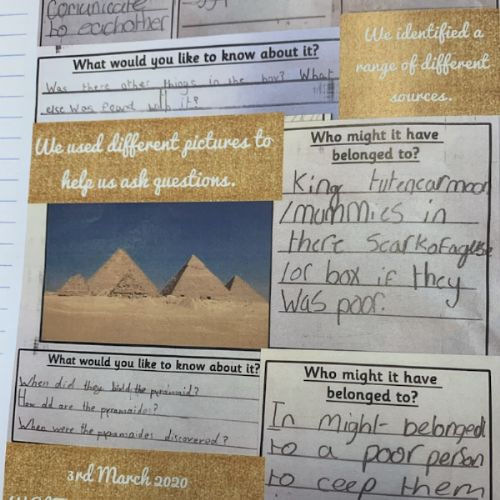 Comunicate
to eachother
What would you like to know about it?
Was there other things in the box? What
else was found with it?
We identified a
range of different
sources.
We used different pictures to
help us ask questions.
Who might it have
belonged to?
King tutencarmoon
/mummies in
there scarkofaguse
/or box if they
was poor.
What would you like to know about it?
When did they bield the pyramaid?
How old are the pyramaides?
When were the pyramaides discovered?
Who might it have
belonged to?
In might belonged
to a poor person
to ceep them
3rd March 2020